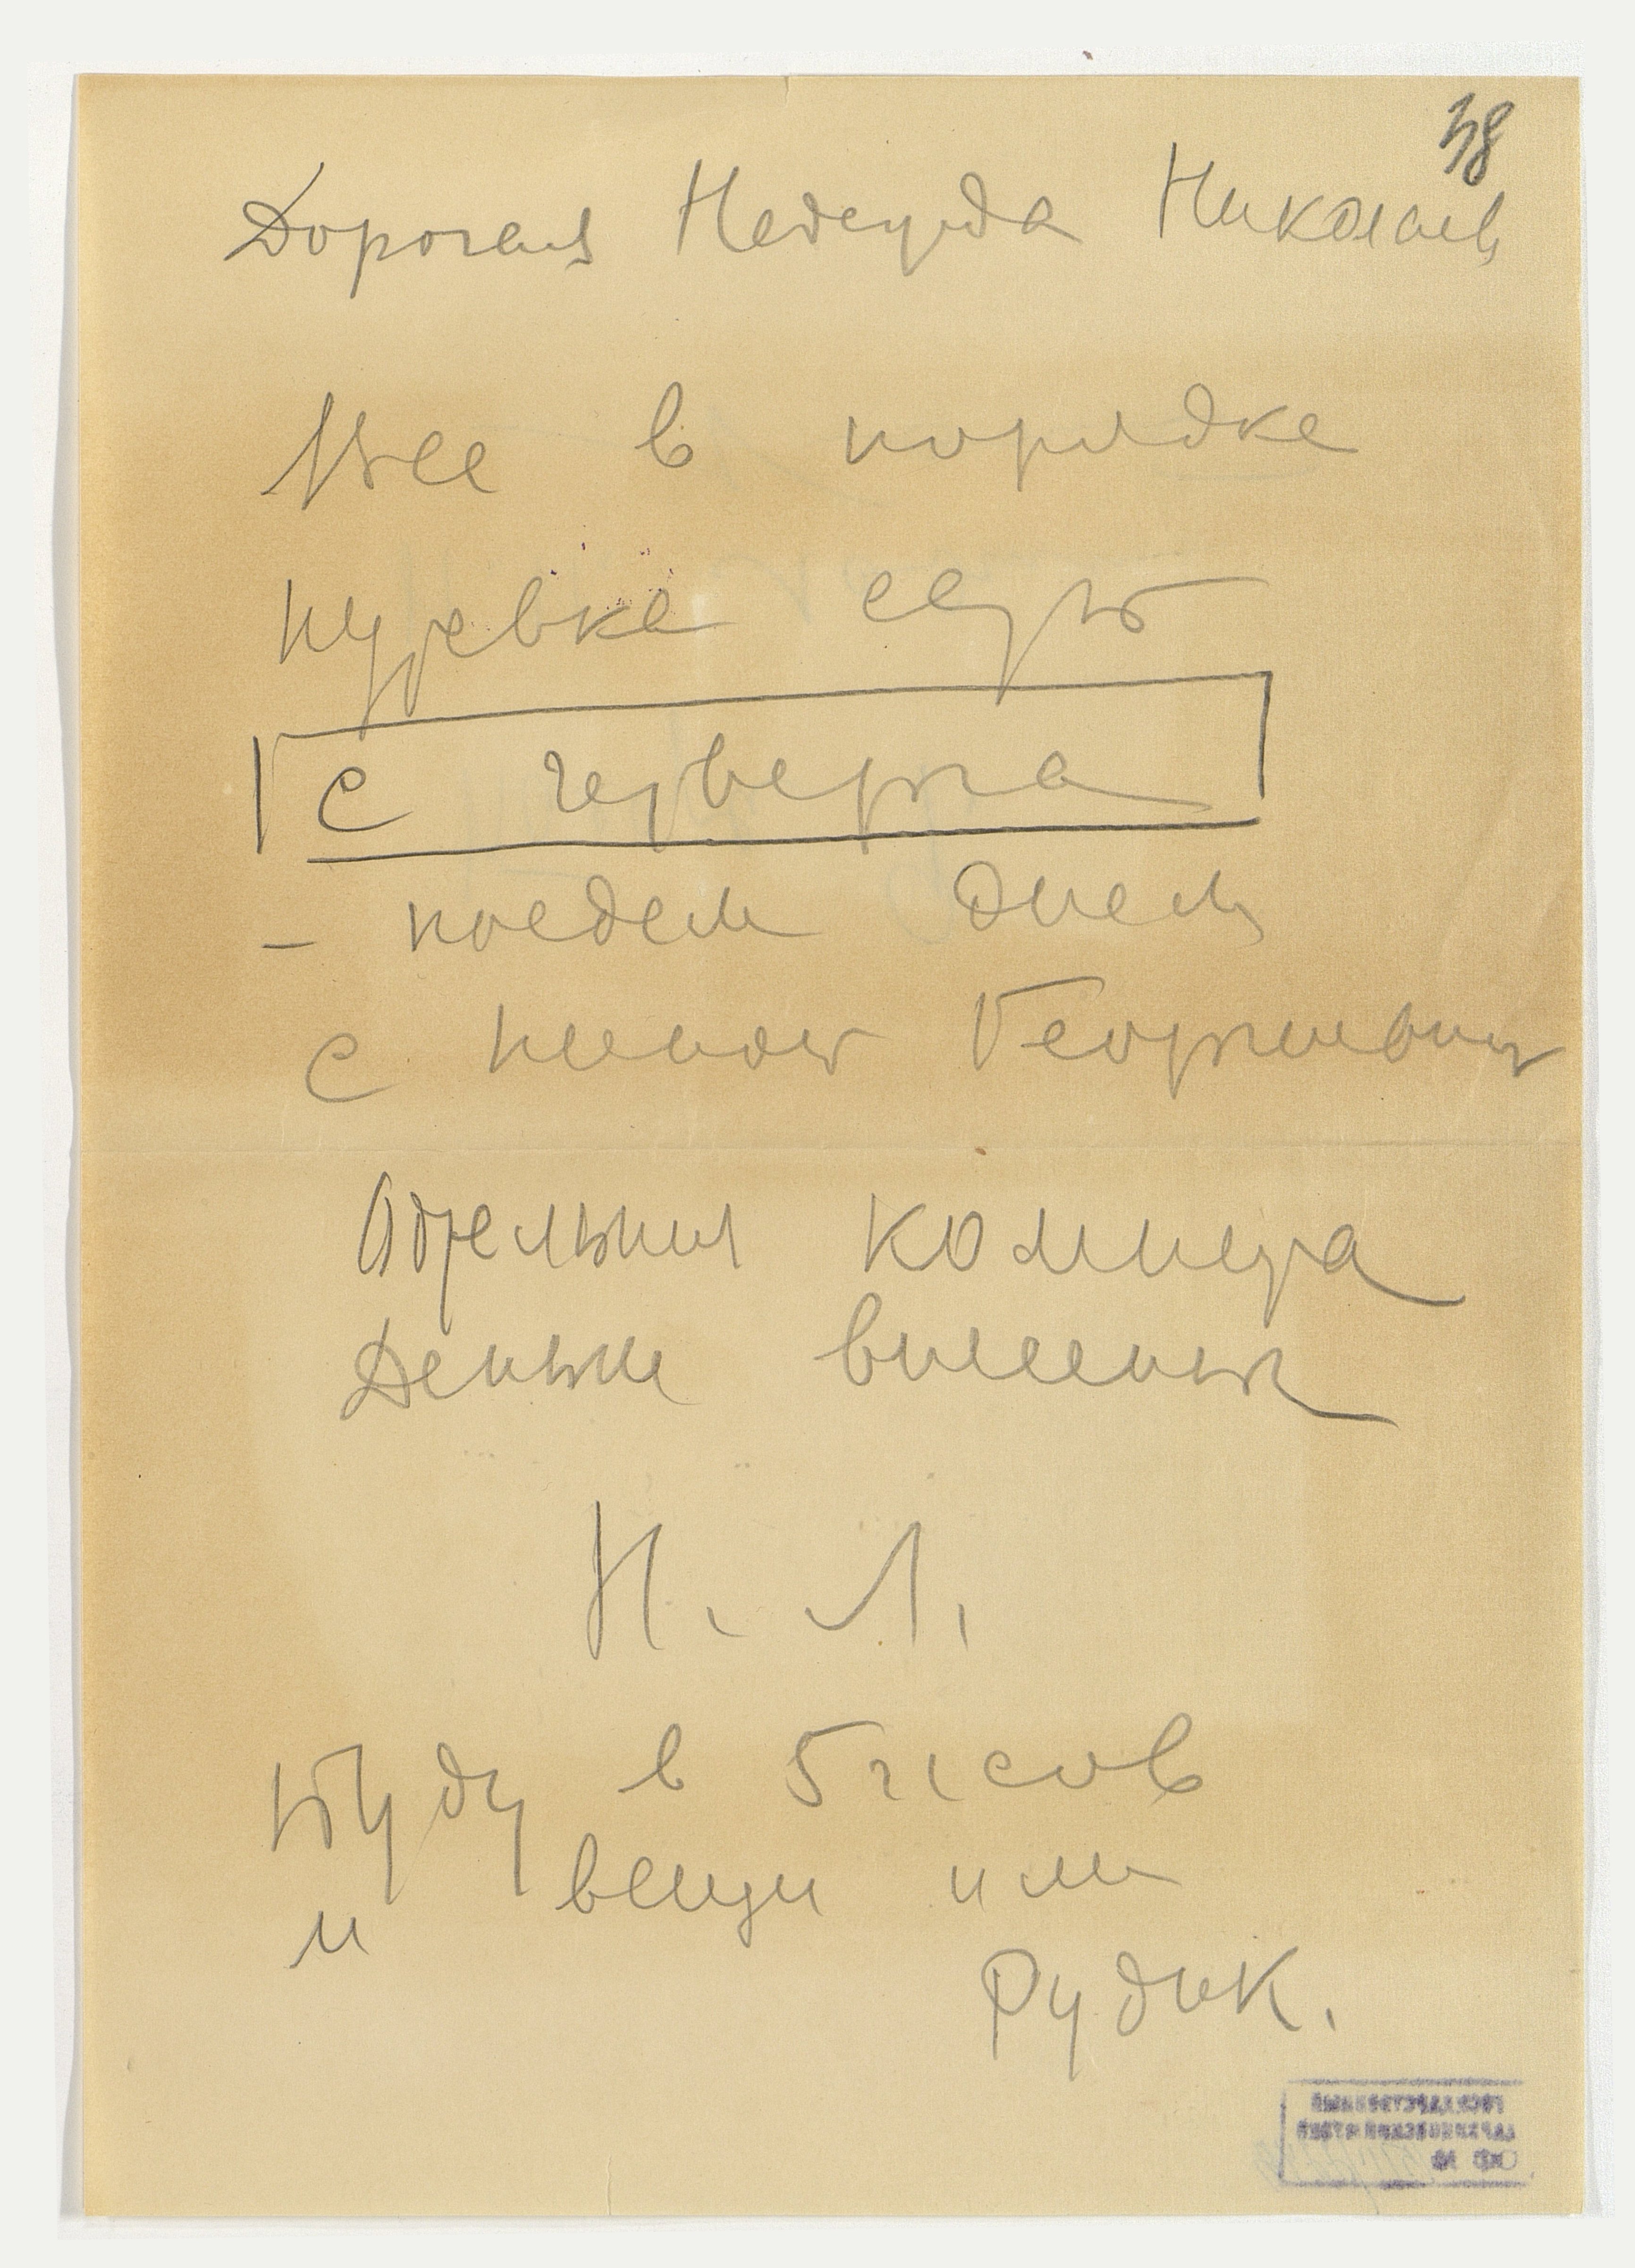 38
Дорогая Надежда Николаев
Все в порядке
путевка есть
с четверга
– поедем днем
с Ниной Георгиевной
Отдельная комната
Деньги внесены
Н. Л.
Буду в 5 часов
и вещи и мы
Рудик.
ГОСУДАРСТВЕННЫЙ